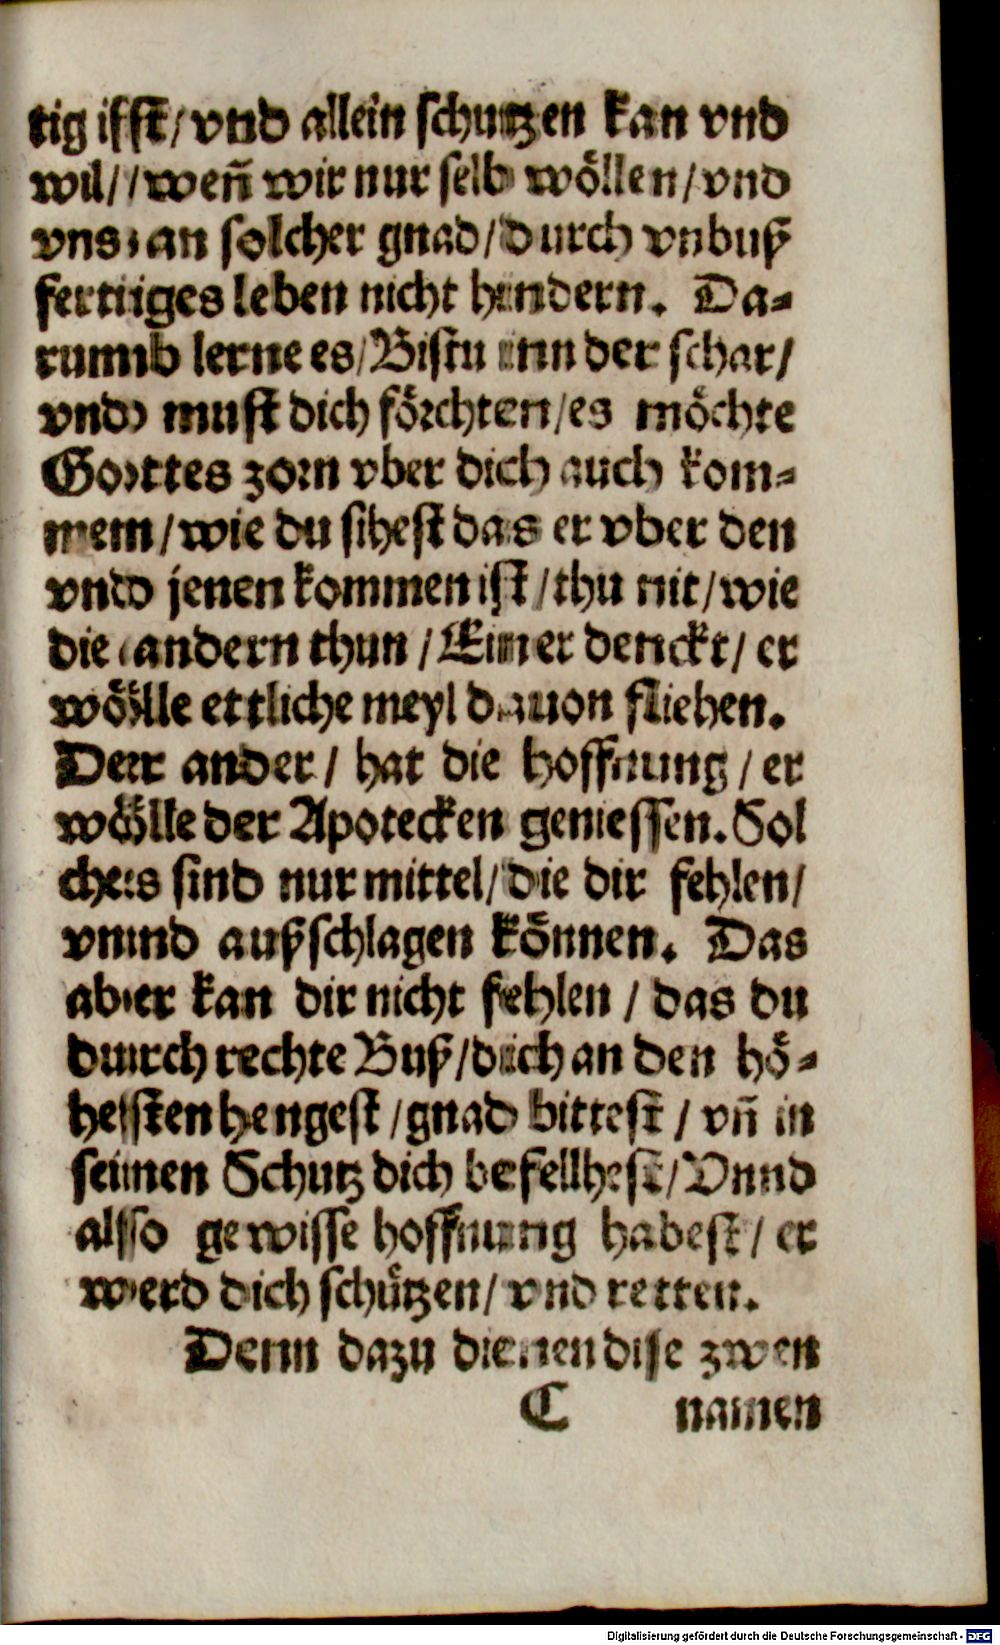 tig ist/ vnd allein schutzen kan vnd
wil/ weñ wir nur selb wöllen/ vnd
vns an solcher gnad/ durch vnbuß
fertiges leben nicht hindern. Da-
rumb lerne es/ Bistu inn der schar/
vnd must dich förchten/ es möchte
Gottes zorn vber dich auch kom-
men/ wie du sihest das er vber den
vnd jenen kommen ist/ thu nit/ wie
die andern thun/ Einer denckt/ er
wölle ettliche meyl dauon fliehen.
Der ander/ hat die hoffnung/ er
wölle der Apotecken geniessen. Sol
ches sind nur mittel/ die dir fehlen/
vnnd außschlagen können. Das
aber kan dir nicht fehlen/ das du
durch rechte Buß/ dich an den hö-
hesten hengest/ gnad bittest/ vñ in
seinen Schutz dich befellhest/ Vnnd
also gewisse hoffnung habest/ er
werd dich schützen/ vnd retten.
Denn dazu dienen dise zwen
C namen
Digitalisierung gefördert durch die Deutsche Forschungsgemeinschaft - DFG